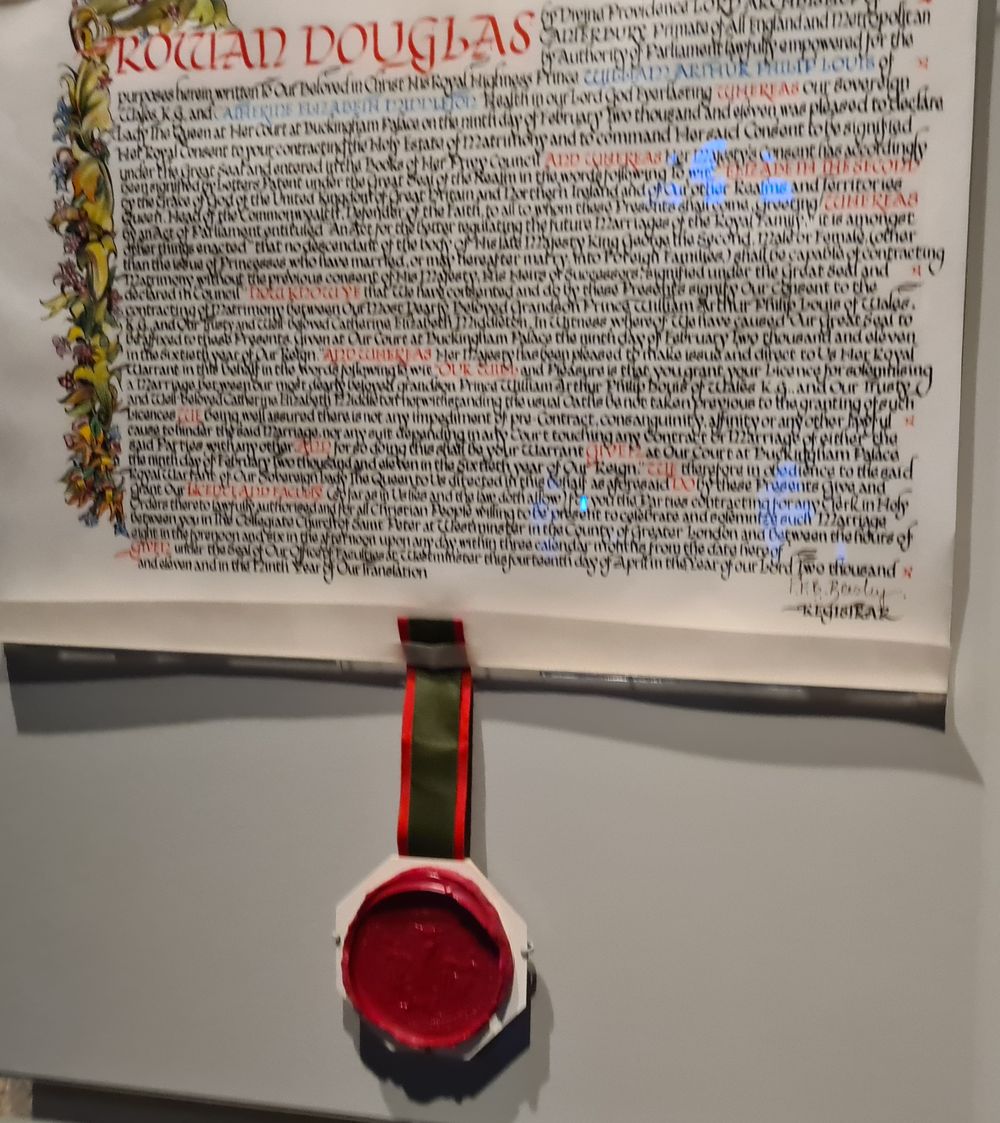 ROWAN DOUGLAS
by Divine Providence LORD ARCHBISHOP of
CANTERBURY Primate of all England and Metropolitan
by Authority of Parliament lawfully empowered for the
purposes herein written to Our Beloved in Christ His Royal Highness Prince WILLIAM ARTHUR PHILIP LOUIS of
Wales, K.G. and CATHERINE ELIZABETH MIDDLETON Health in our Lord God Everlasting WHEREAS Our Sovereign
Lady The Queen at Her Court at Buckingham Palace on the ninth day of February Two thousand and eleven, was pleased to declare
Her Royal Consent to your contracting the Holy Estate of Matrimony and to command Her said Consent to be signified
under the Great Seal and entered in the Books of Her Privy Council AND WHEREAS Her Majesty's Consent has accordingly
been signified by Letters Patent under the Great Seal of the Realm in the words following ELIZABETH THE SECOND
by the Grace of God of the United Kingdom of Great Britain and Northern Ireland and of Our other Realms and Territories
Queen, Head of the Commonwealth, Defender of the Faith, to all to whom these Presents shall come, Greeting WHEREAS
by an Act of Parliament entituled "An Act for the better regulating the future Marriages of the Royal Family" it is amongst
other things enacted "that no descendant of the body of His late Majesty King George the Second, Male or Female, (other
than the issue of Princesses who have married, or may hereafter marry, into Foreign Families,) shall be capable of contracting
Matrimony without the previous consent of His Majesty, His Heirs or Successors, signified under the Great Seal and
declared in Council" NOW KNOW YE that We have consented and do by these Presents signify Our Consent to the
contracting of Matrimony between Our Most Dearly Beloved Grandson Prince William Arthur Philip Louis of Wales,
K.G., and Our Trusty and Well-beloved Catherine Elizabeth Middleton. In Witness whereof We have caused Our Great Seal to
be affixed to these Presents. Given at Our Court at Buckingham Palace the ninth day of February Two thousand and eleven
in the sixtieth year of Our Reign. AND WHEREAS Her Majesty has been pleased to make issue and direct to Us Her Royal
Warrant in this behalf in the words following "OUR WILL and Pleasure is that you grant your Licence for solemnising
a Marriage between our most dearly beloved Grandson Prince William Arthur Philip Louis of Wales K.G., and Our Trusty
and Well-beloved Catherine Elizabeth Middleton notwithstanding the usual Oaths be not taken previous to the granting of such
Licences WE being well assured there is not any impediment of pre-Contract, consanguinity, affinity or any other lawful
cause to hinder the said Marriage, nor any suit depending in any Court touching any Contract or Marriage of either the
said Parties with any other AND for so doing this shall be your Warrant GIVEN at Our Court at Buckingham Palace
the ninth day of February Two thousand and eleven in the Sixtieth year of Our Reign." WE therefore in obedience to the said
Royal Warrant of Our Sovereign Lady The Queen to Us directed in this behalf as aforesaid DO by these Presents Give and
Grant Our LICENCE AND FACULTY so far as in Us lies and the law doth allow to you the Parties contracting for any Clerk in Holy
Orders thereto lawfully authorised and for all Christian People willing to be present to celebrate and solemnize such Marriage
between you in the Collegiate Church of Saint Peter at Westminster in the County of Greater London and between the hours of
eight in the forenoon and six in the afternoon upon any day within three calendar months from the date hereof
GIVEN under the Seal of Our Office of Faculties at Westminster the fourteenth day of April in the Year of our Lord Two thousand
and eleven and in the Ninth Year of Our Translation
P.F.B. Beesley
REGISTRAR